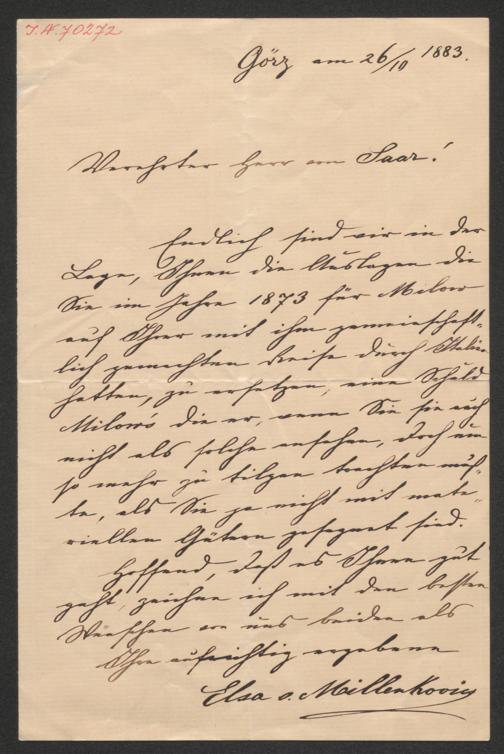 J.N. 70272
Görz am 26/10 1883.
Verehrter Herr von Saar!
Endlich sind wir in der
Lage, Ihnen die Auslagen die
Sie im Jahre 1873 für Milow
auf Ihrer mit ihm gemeinschaft-
lich gemachten Reise durch Italien
hatten, zu ersetzen, eine Schuld
Milow's die er, wenn Sie sie auch
nicht als solche ansehen, doch um
so mehr zu tilgen trachten muß-
te, als Sie ja nicht mit mate-
riellen Gütern gesegnet sind.
Hoffend, daß es Ihnen gut
geht, zeichne ich mit den besten
Wünschen von uns beiden als
Ihre aufrichtig ergebene
Elsa v. Millenkovics